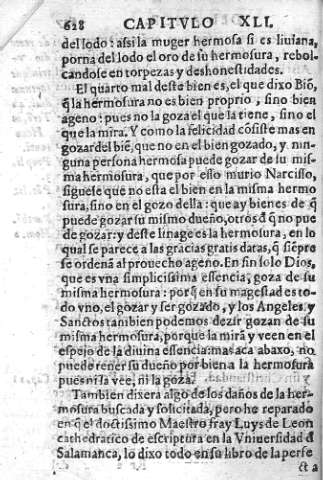 628 CAPITVLO XLI.
del lodo: assi la muger hermosa si es liuiana,
porna del lodo el oro de su hermosura, rebol-
candose en torpezas y deshonestidades.
El quarto mal deste bien es, el que dixo Biõ,
q̃ la hermosura no es bien proprio, sino bien
ageno: pues no la goza el que la tiene, sino el
que la mira. Y como la felicidad cõsiste mas en
gozar del biẽ, que no en el bien gozado, y nin-
guna persona hermosa puede gozar de su mis-
ma hermosura, que por esso murio Narcisso,
siguese que no esta el bien en la misma hermo
sura, sino en el gozo della: que ay bienes de q̃
puede gozar su mismo dueño, otros d̃ q̃ no pue
de gozar: y deste linage es la hermosura, en lo
qual se parece a las gracias gratis datas, q̃ siẽpre
se ordenã al prouecho ageno. En fin solo Dios,
que es vna simplicissima essencia, goza de su
misma hermosura: porq̃ en su magestad es to-
do vno, el gozar y ser gozado, y los Angeles y
Sanctos tambien podemos dezir gozan de su
misma hermosura, porque la mirã y veen en el
espejo de la diuina essencia: mas aca abaxo, no
puede tener su dueño por bien a la hermosura
pues ni la vee, ni la goza.
Tambien dixera algo de los daños de la her-
mosura buscada y solicitada, pero he reparado
en q̃ el doctissimo Maestro fray Luys de Leon
cathedratico de escriptura en la Vniuersidad d̃
Salamanca, lo dixo todo en su libro de la perfe
ct a